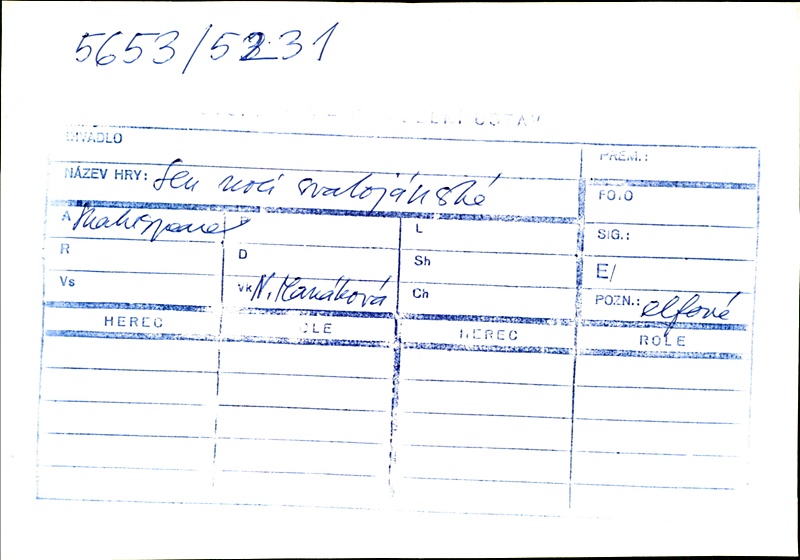 5653/5231
DIVADLO
PREM.:
NÁZEV HRY: Sen noci svatojánské
FOTO
A Shakespeare
L
SIG.:
R
D
Sh
E/
Vs
Vk N. Hanáková
Ch
POZN.: elfové
HEREC
ROLE
HEREC
ROLE